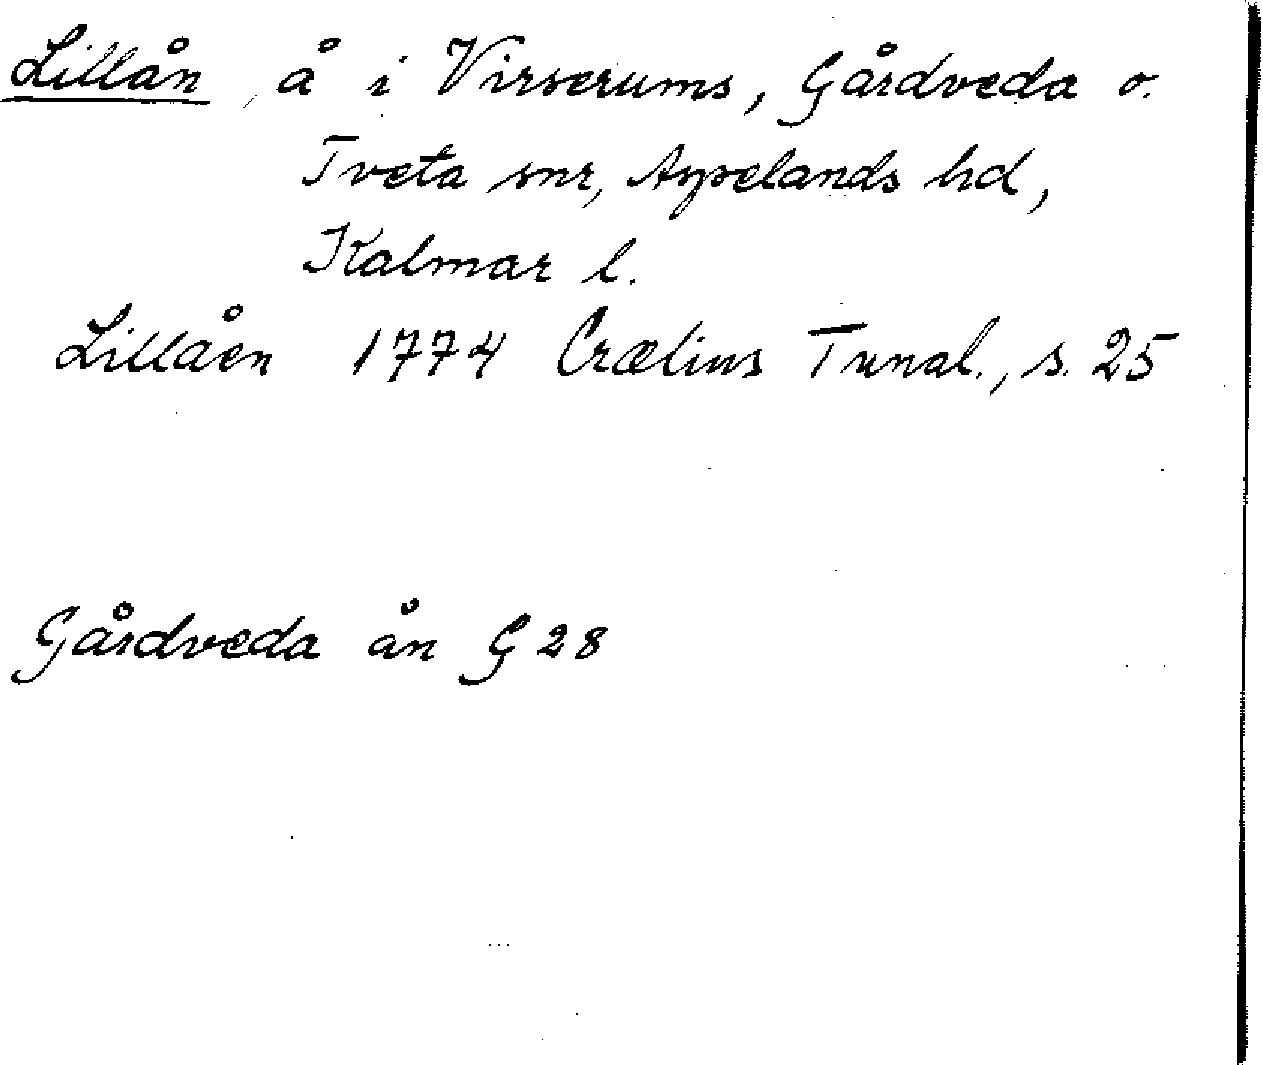 Lillån, å i Virserums, Gårdveda o.
Tveta snr, Aspelands hd,
Kalmar l.
Lillåen 1774 Crælius Tunal., s. 25
Gårdveda ån G 28